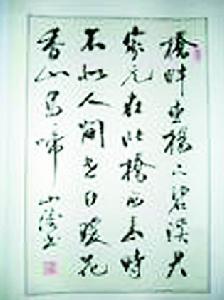 橋畔垂楊下碧溪君
家元在北橋西来時
不似人間世日暖花
香山鳥啼
书